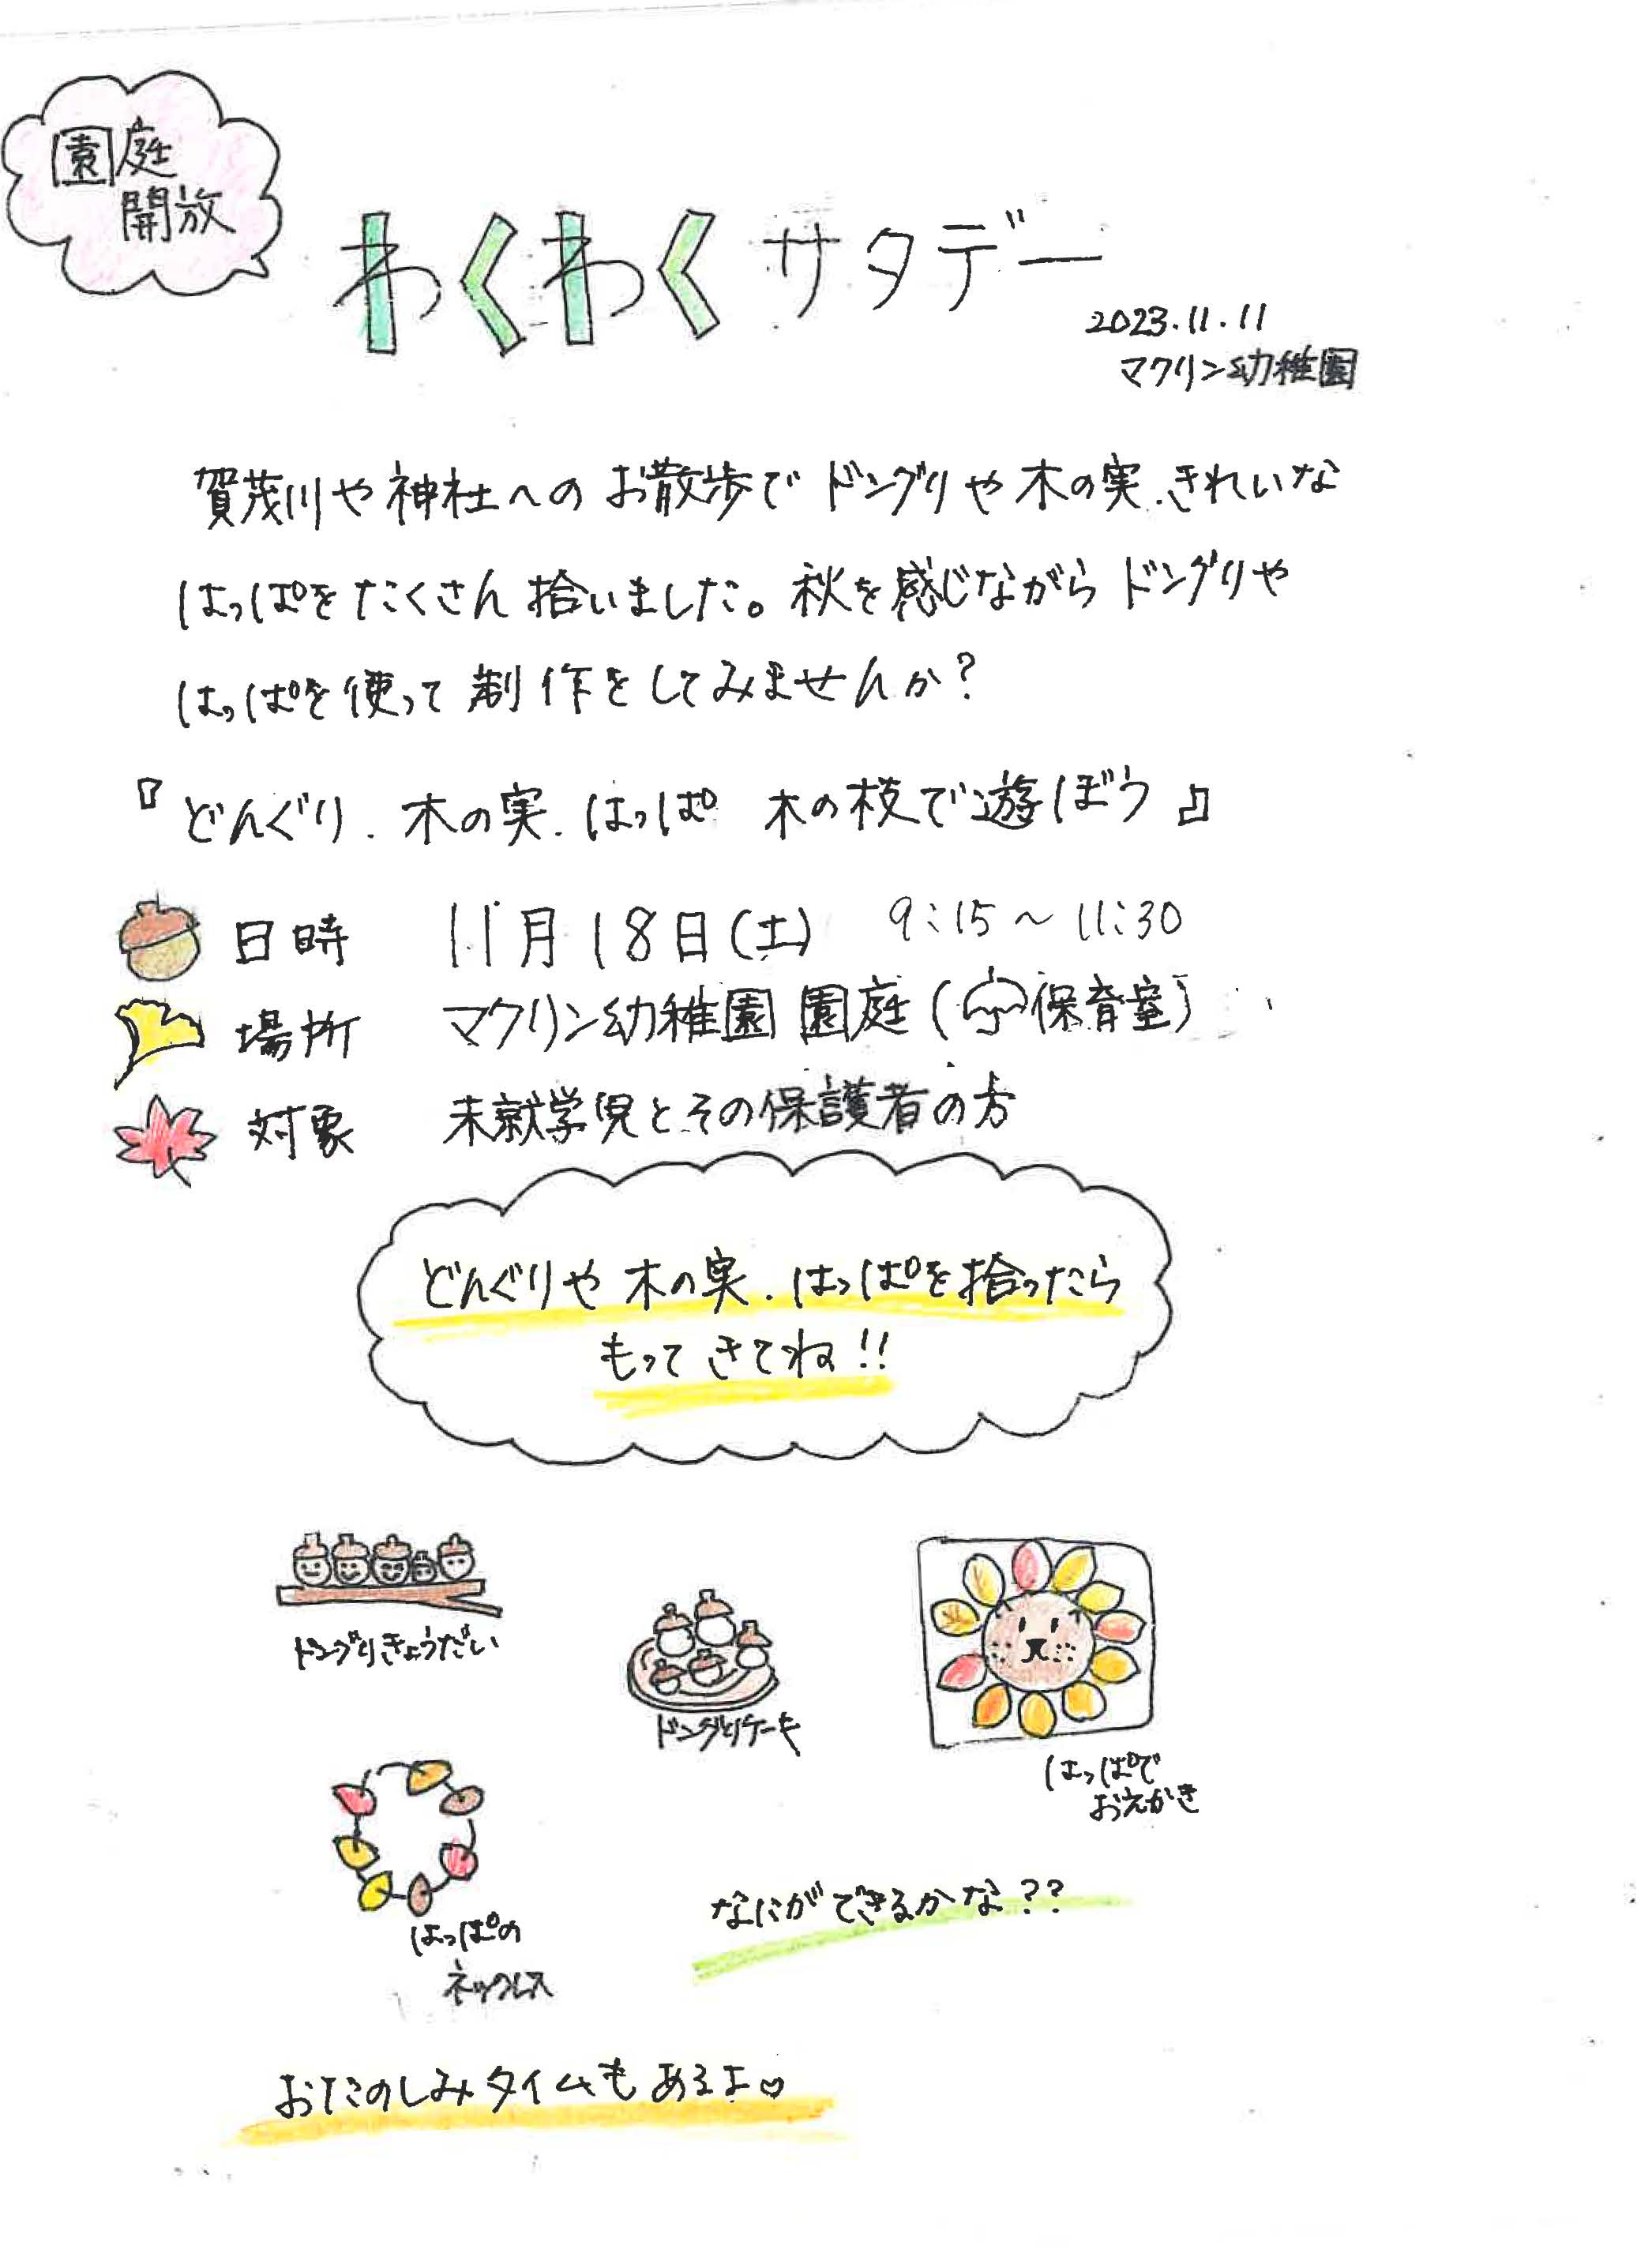 園庭
開放
わくわくサタデー
2023.11.11
マクリン幼稚園
賀茂川や神社へのお散歩でドングリや木の実.きれいな
はっぱをたくさん拾いました。秋を感じながらドングリや
はっぱを使って制作をしてみませんか？
『どんぐり.木の実.はっぱ 木の枝で遊ぼう』
日時 11月18日(土) 9:15〜11:30
場所 マクリン幼稚園 園庭(☂保育室)
対象 未就学児とその保護者の方
どんぐりや木の実.はっぱを拾ったら
もってきてね!!
ドングリきょうだい
ドングリケーキ
はっぱで
おえかき
はっぱの
ネックレス
なにができるかな??
おたのしみタイムもあるよ♡